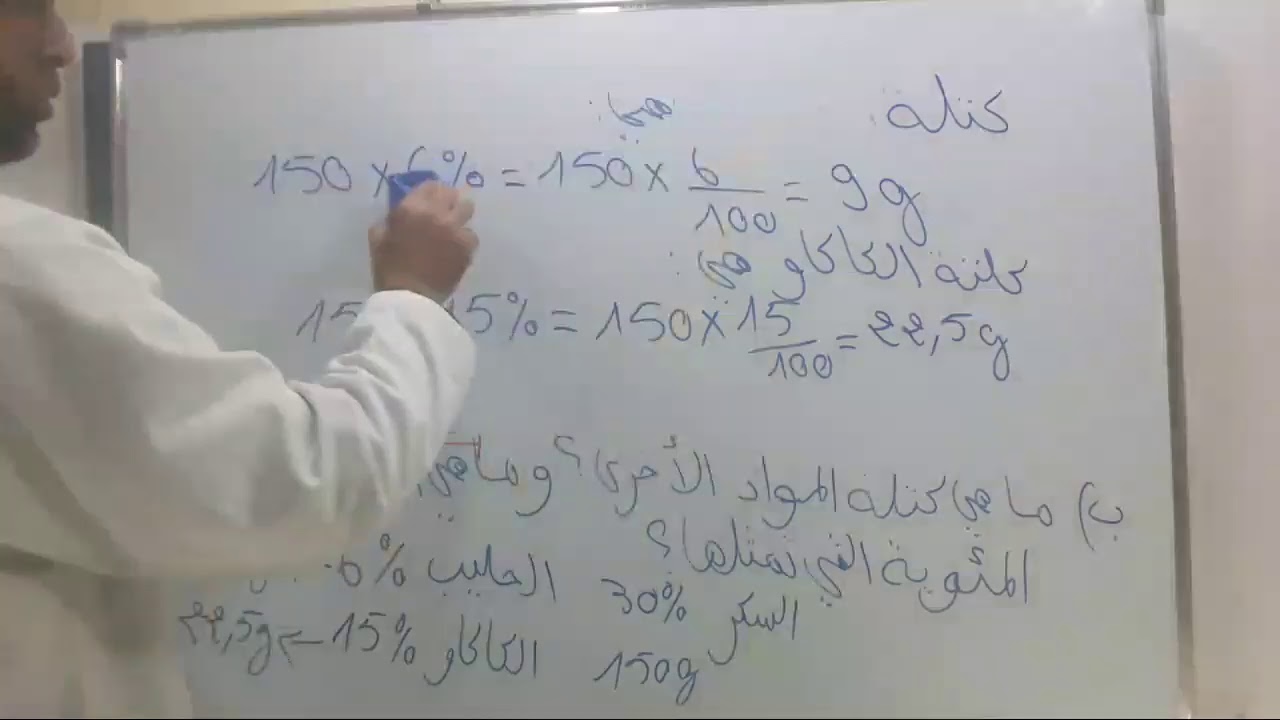 كتلة
هي:
150 × 6% = 150 × 6/100 = 9g
كتلة الكاكاو هي:
15 15% = 150 × 15/100 = 22,5g
ب) ما هي كتلة المواد الأخرى؟ وما هي
المئوية التي تمثلها؟
السكر 30% الحليب 6%
150g الكاكاو 15% → 22,5g